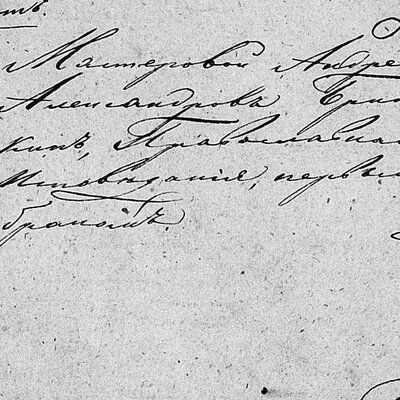 тъ.
Мастеровой Андре
Александровъ Ери
кинъ, Православна
Исповѣданія, первы
бракомъ.